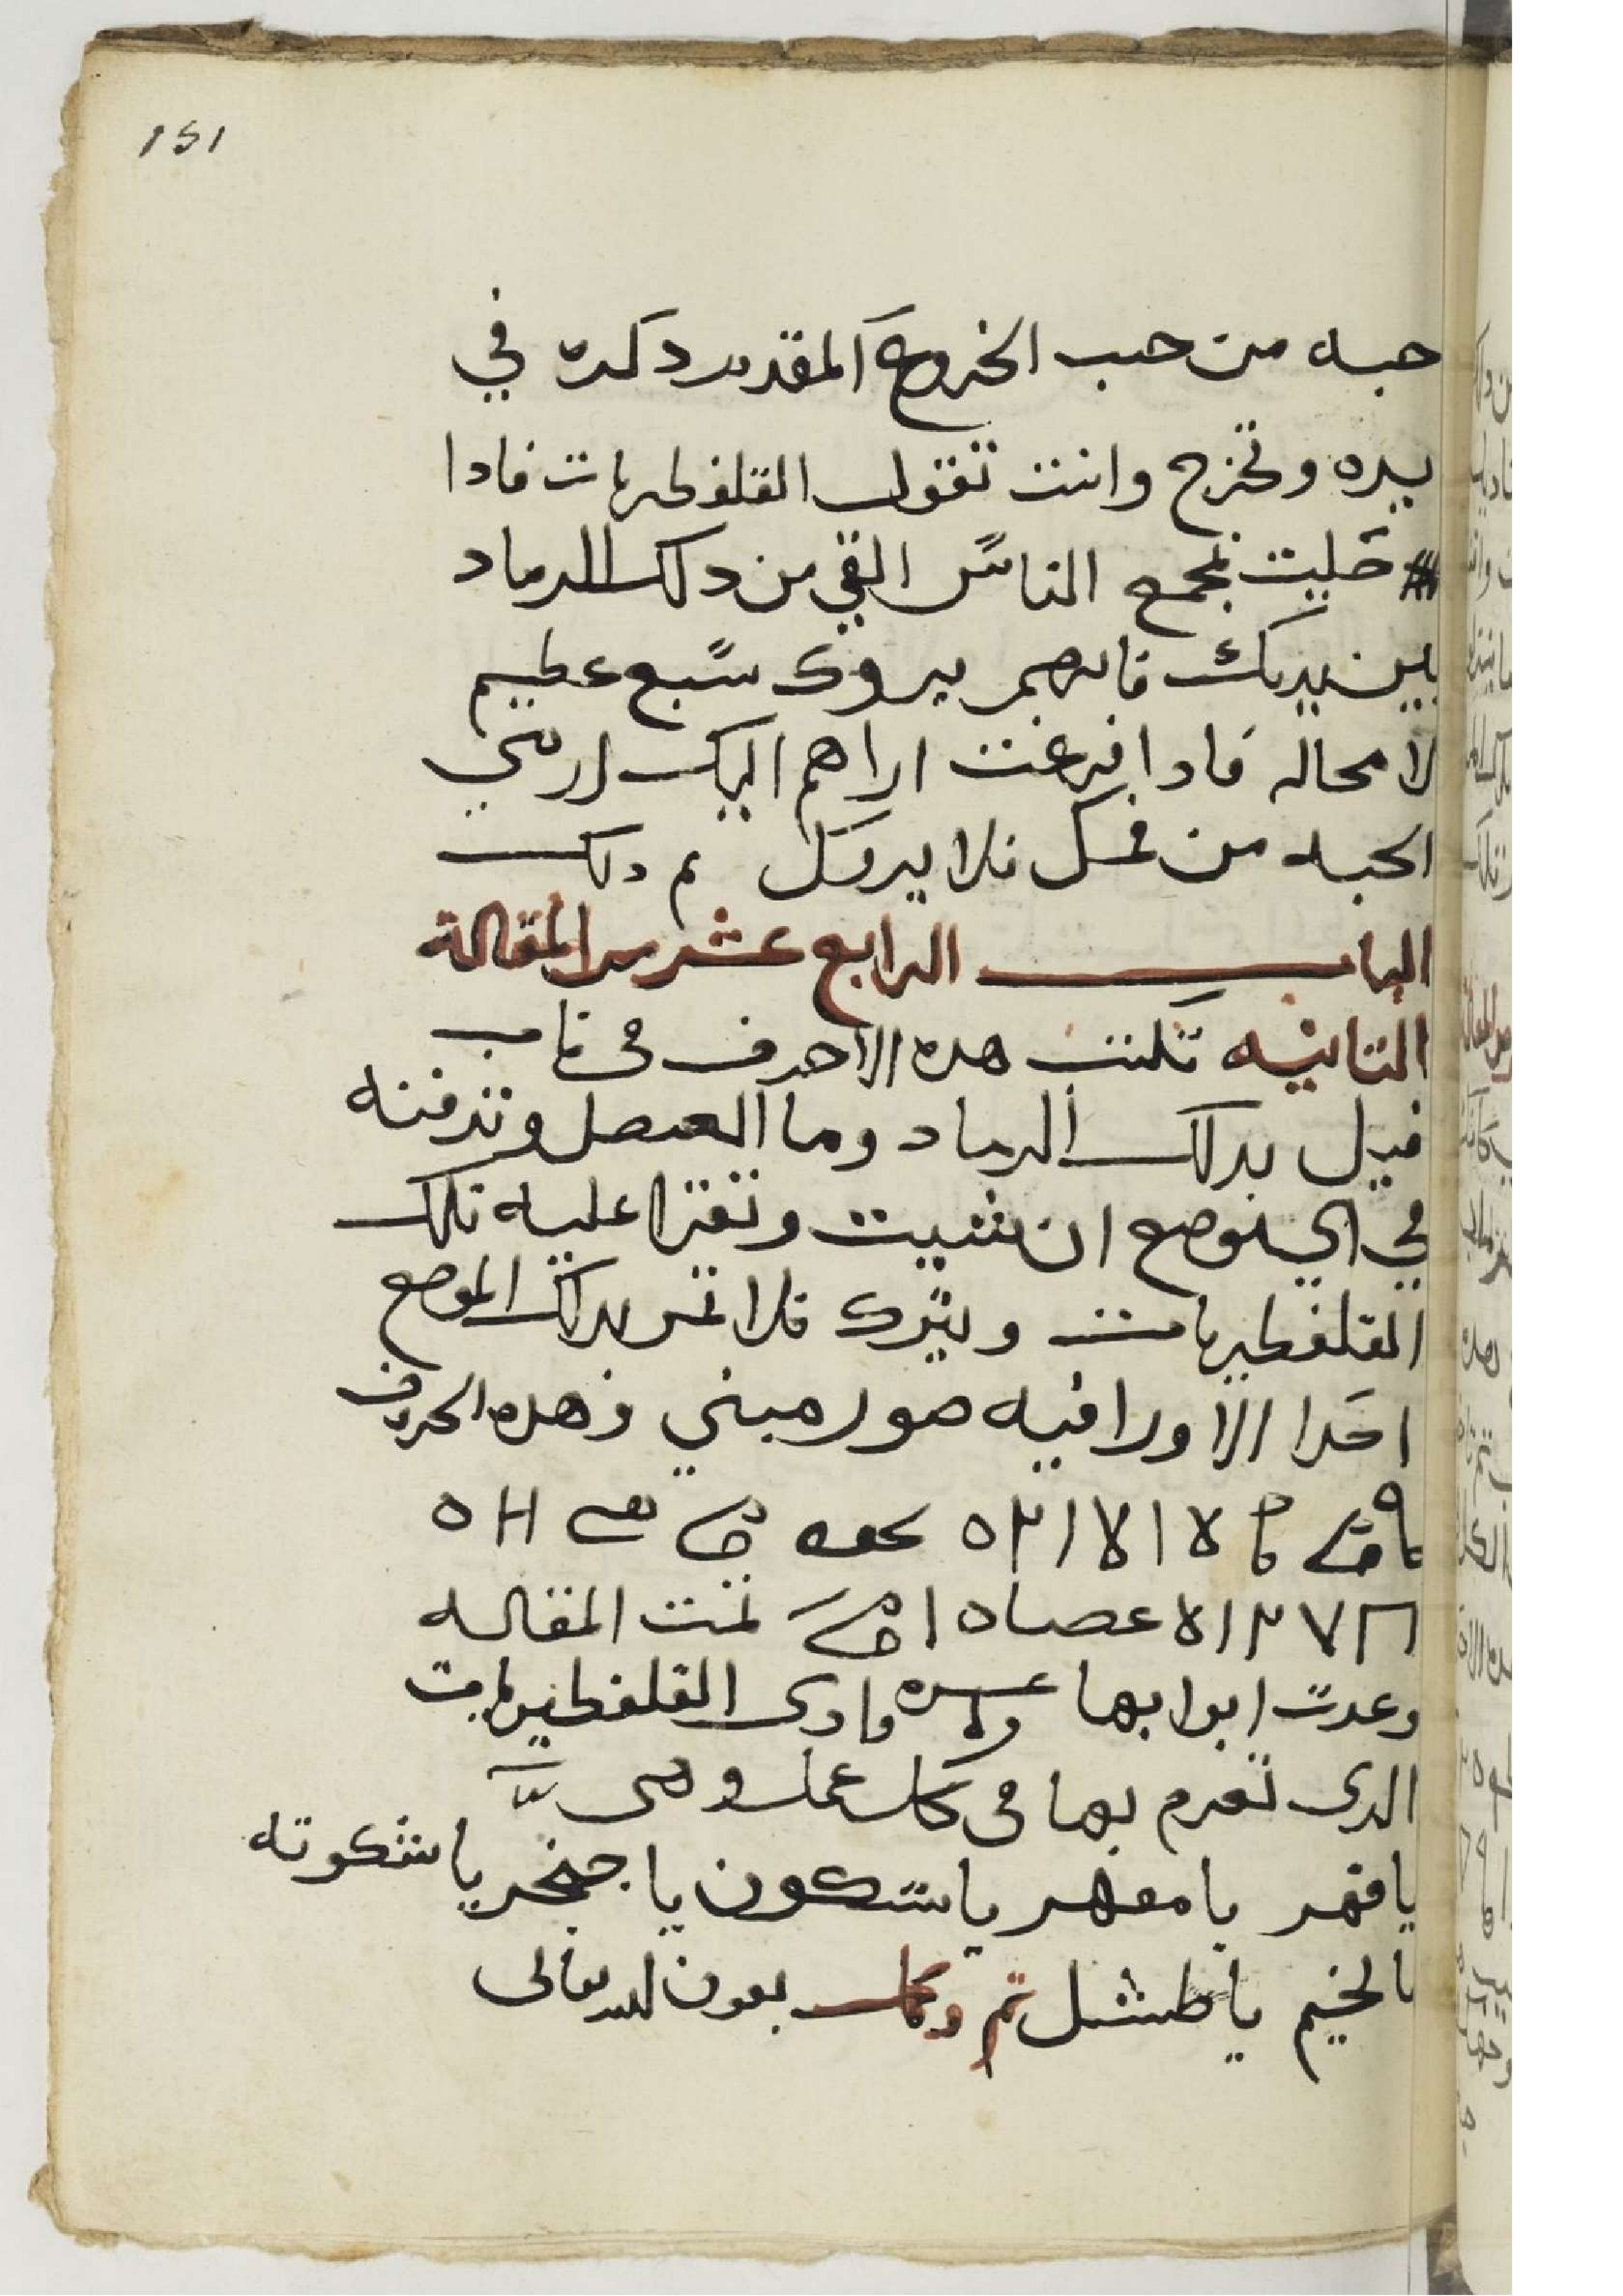 151
حبه من حب الخروع المقدم دكره في
يده وتخرج وانت تقول القلفطيريات فادا
خليت بمجمع الناس القي من دلك الرماد
بين يديك فانهم يروك سبع عظيم
لا محاله فادا فرغت اراهم اليك ارمي
الحبه من فمك فلا يروك تم دلك
الباب الرابع عشر من المقالة
التانيه تكتب هده الاحرف في ناب
فيل بدلك الرماد وما العنصل وتدفنه
في اي موضع ان شيت وتقرا عليه تلك
القلفطيريات ويترك فلا تمر بدلك الموضع
احدا الا ورا فيه صور مبني وهده الحروف
تمت المقاله
وعدت ابوابها عشره وادى القلفطيريات
الدى تعزم بها في كل عمل وهى
يا فهر يا معهر يا شكون يا جنجر يا شكوته
يا لخيم يا طشل تم وكمل بعون الله تعالى